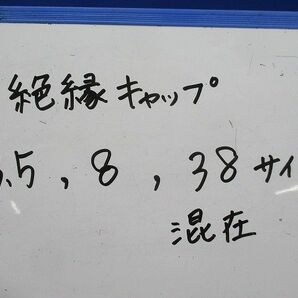 絶縁キャップ
.5, 8, 38サイ
混在